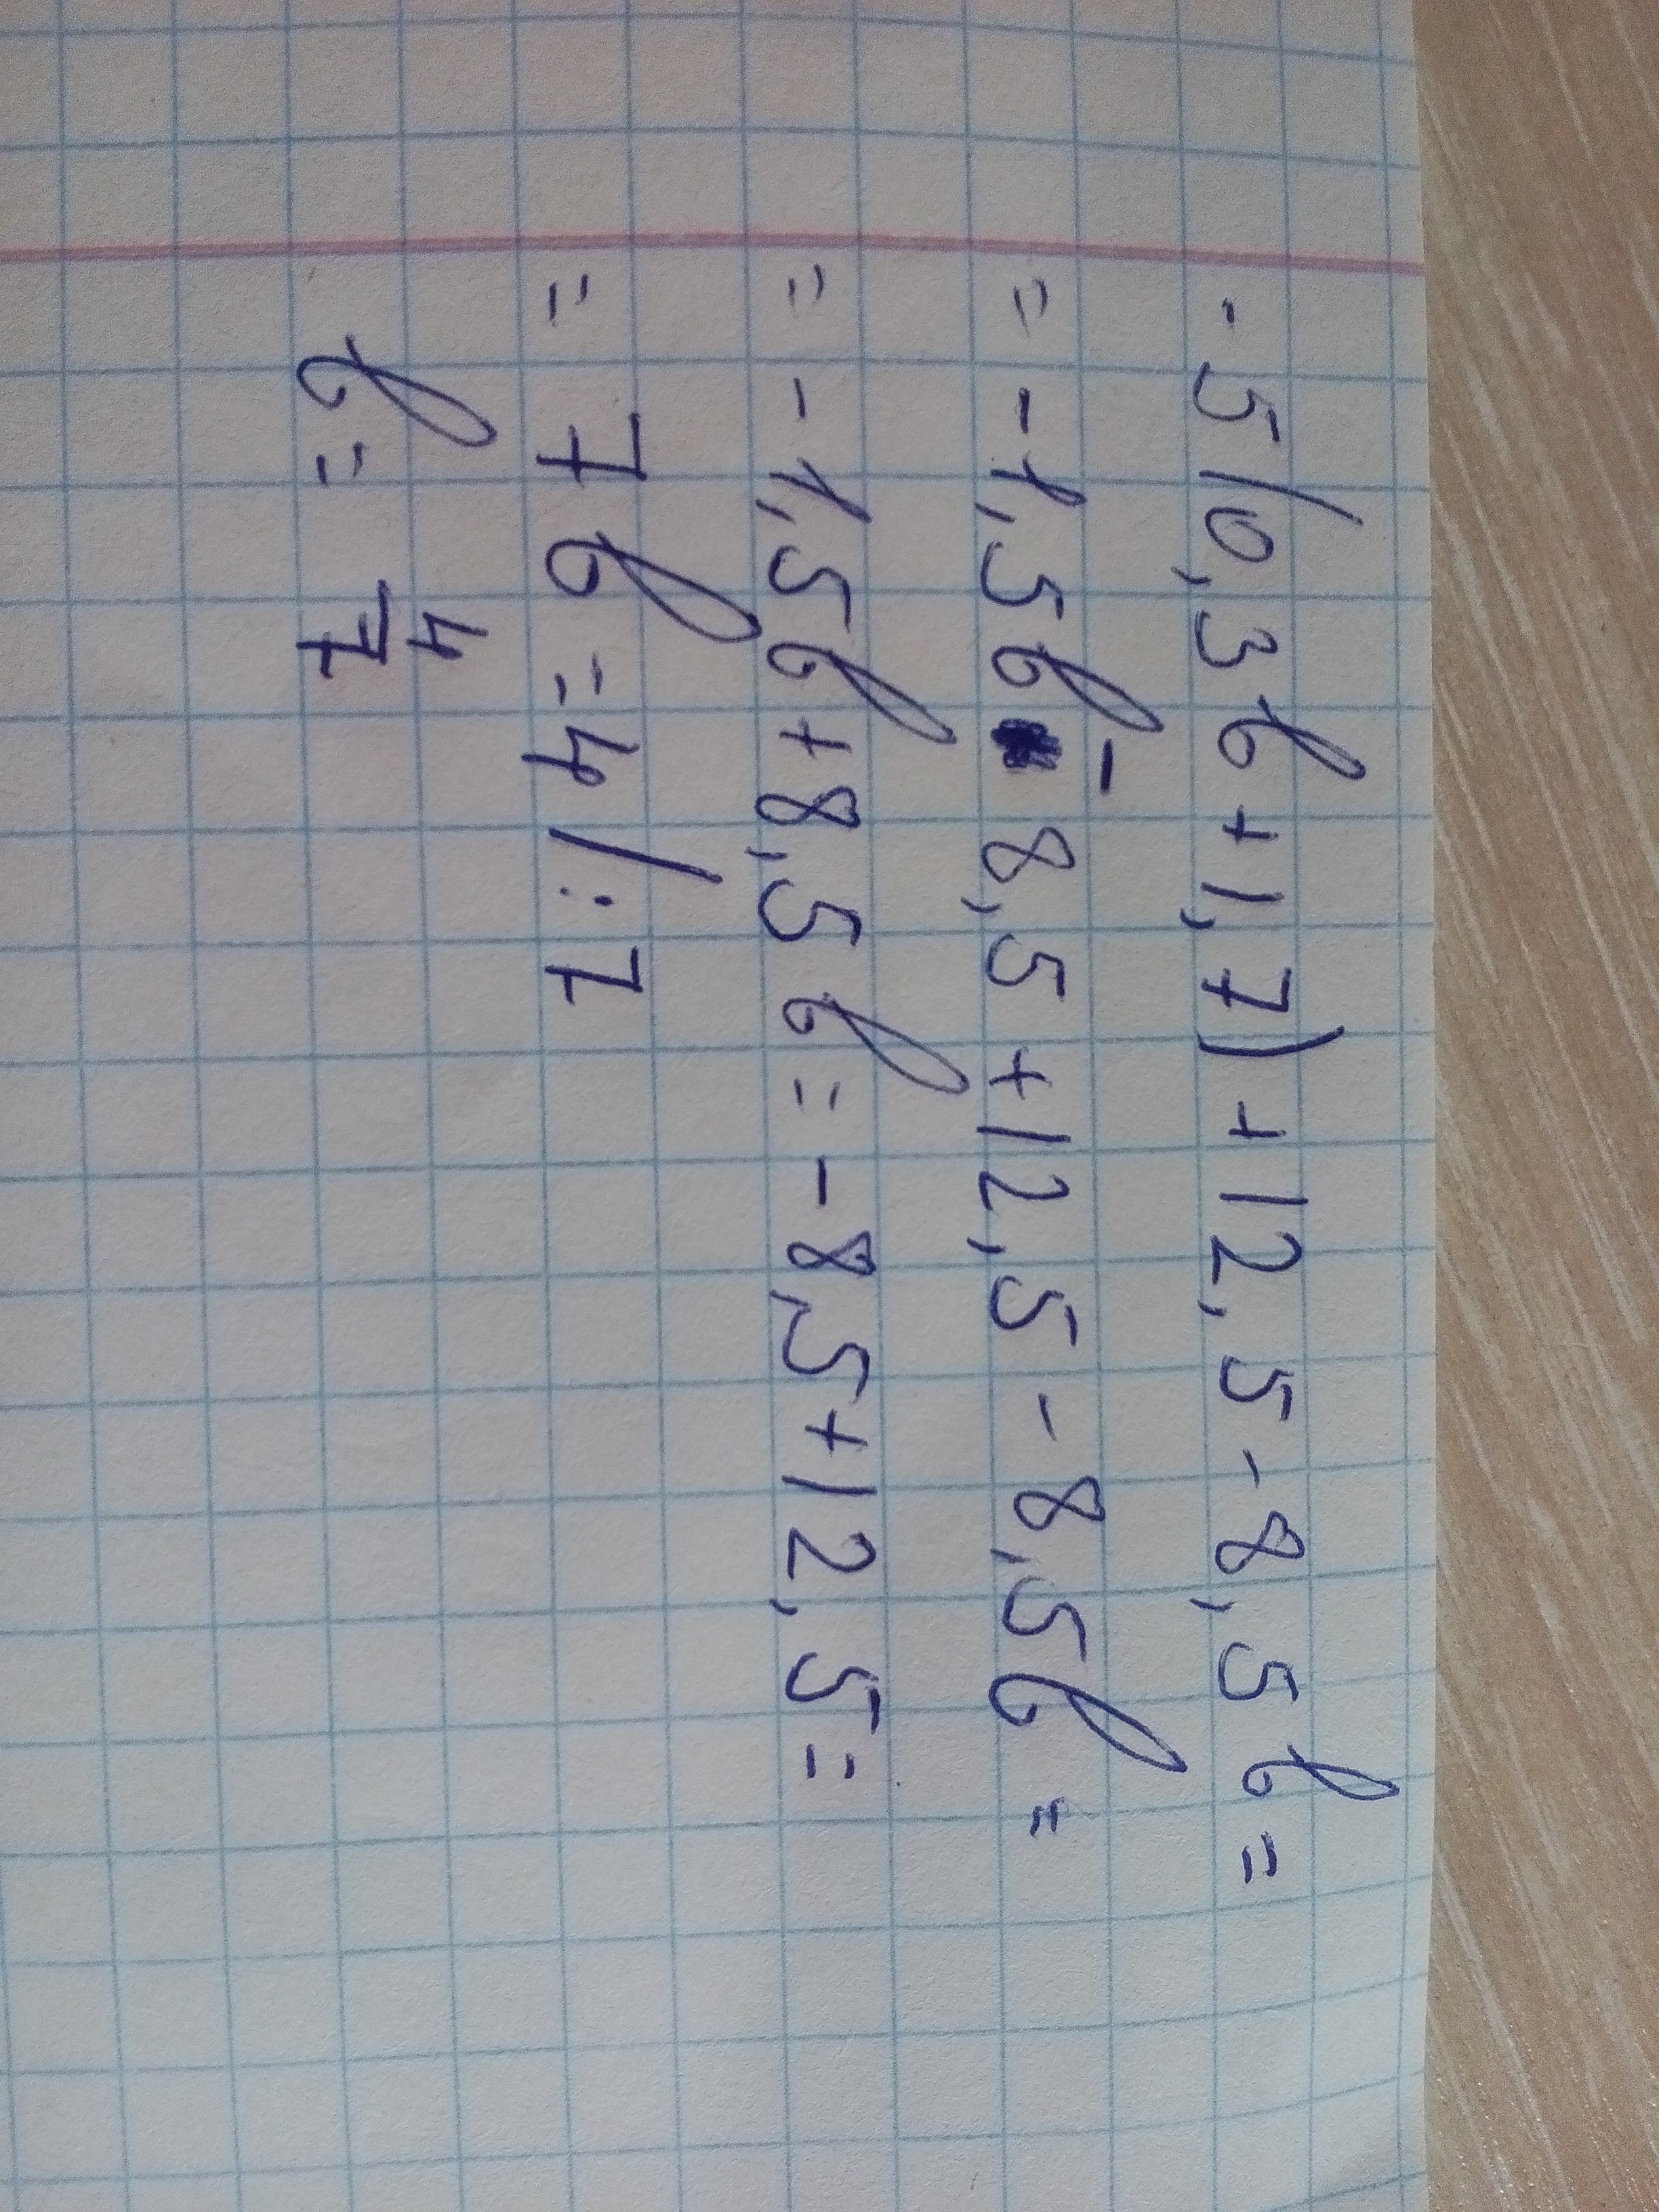 - 5(0,3b+1,7)+12,5-8,5b=
= -1,5b - 8,5+12,5-8,5b=
= -1,5b+8,5b=-8,5+12,5=
= 7b=4/:7
b= 4/7